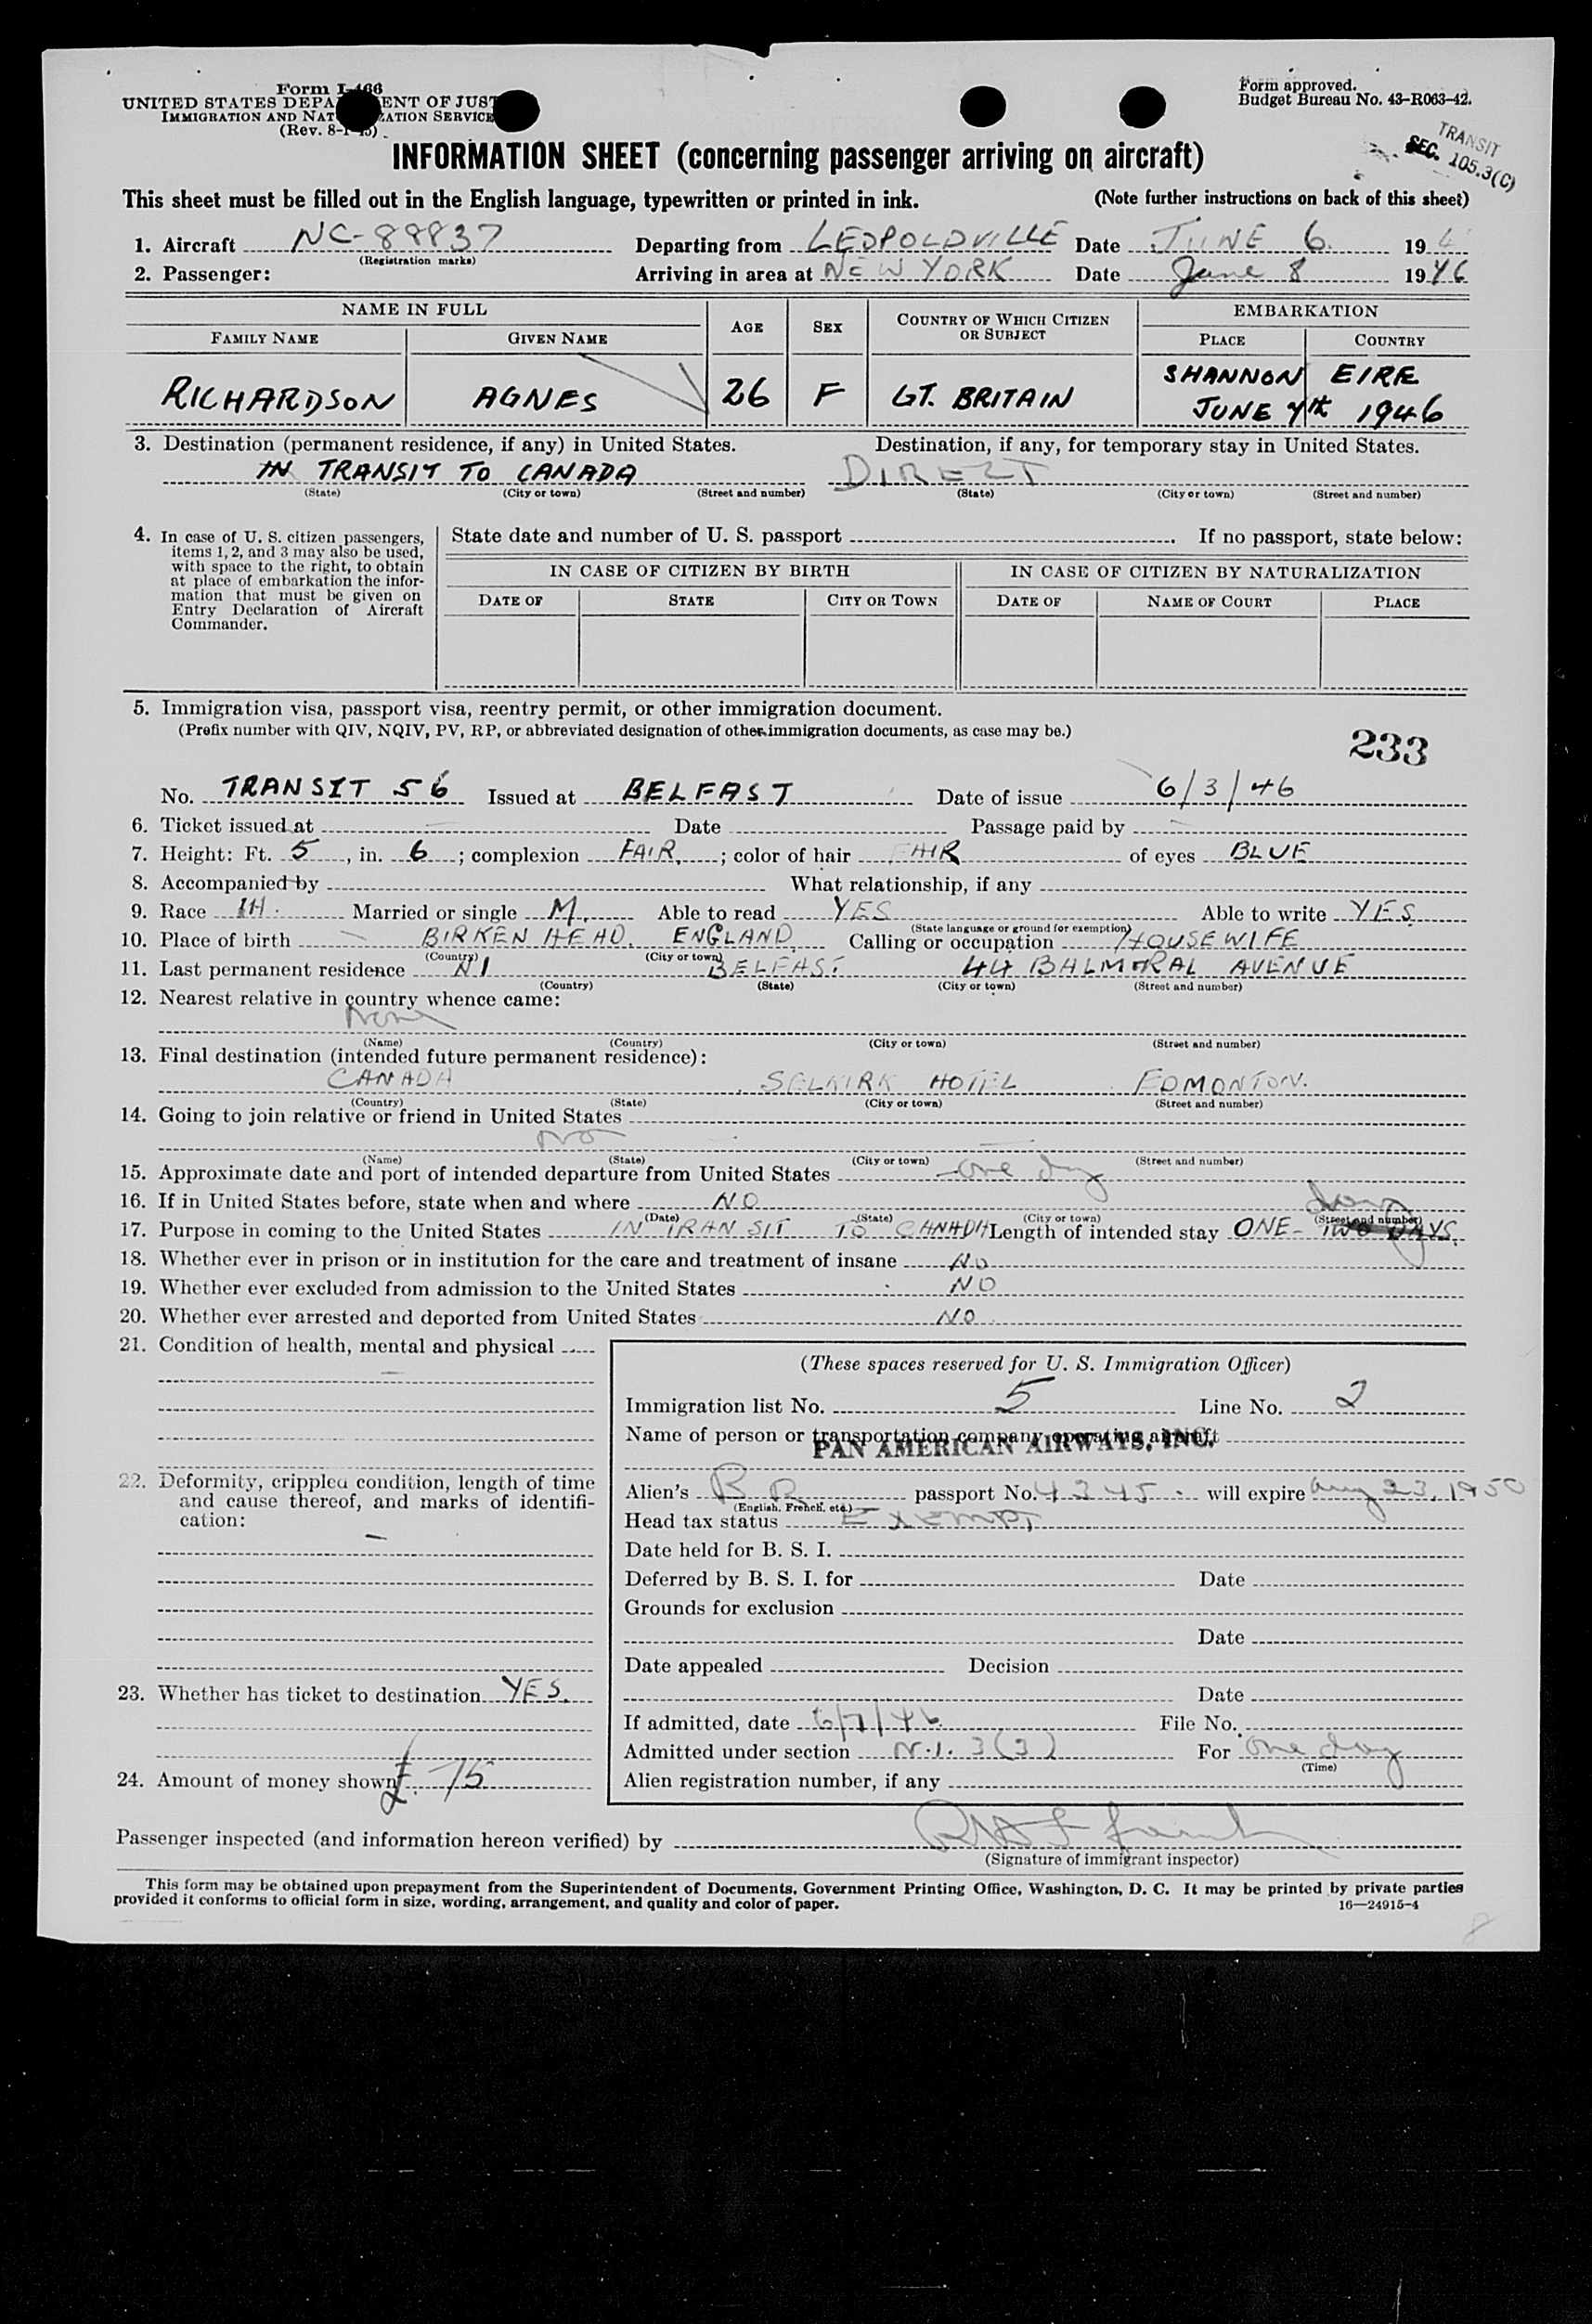 Form I-466
UNITED STATES DEPA ENT OF JUST
IMMIGRATION AND NAT ZATION SERVICE
(Rev. 8-1-45)
Form approved.
Budget Bureau No. 43-R063-42.
TRANSIT
SEC. 105.3(C)
INFORMATION SHEET (concerning passenger arriving on aircraft)
This sheet must be filled out in the English language, typewritten or printed in ink. (Note further instructions on back of this sheet)
1. Aircraft NC-88837 Departing from LEOPOLDVILLE Date JUNE 6 194
(Registration marks)
2. Passenger: Arriving in area at NEW YORK Date June 8 1946
NAME IN FULL AGE SEX COUNTRY OF WHICH CITIZEN OR SUBJECT EMBARKATION
FAMILY NAME GIVEN NAME PLACE COUNTRY
RICHARDSON AGNES 26 F GT. BRITAIN SHANNON EIRE
JUNE 7th 1946
3. Destination (permanent residence, if any) in United States. Destination, if any, for temporary stay in United States.
IN TRANSIT TO CANADA DIRECT
(State) (City or town) (Street and number) (State) (City or town) (Street and number)
4. In case of U. S. citizen passengers, items 1, 2, and 3 may also be used, with space to the right, to obtain at place of embarkation the information that must be given on Entry Declaration of Aircraft Commander.
State date and number of U. S. passport If no passport, state below:
IN CASE OF CITIZEN BY BIRTH IN CASE OF CITIZEN BY NATURALIZATION
DATE OF STATE CITY OR TOWN DATE OF NAME OF COURT PLACE
5. Immigration visa, passport visa, reentry permit, or other immigration document.
(Prefix number with QIV, NQIV, PV, RP, or abbreviated designation of other immigration documents, as case may be.)
233
No. TRANSIT 56 Issued at BELFAST Date of issue 6/3/46
6. Ticket issued at Date Passage paid by
7. Height: Ft. 5, in. 6; complexion FAIR; color of hair FAIR of eyes BLUE
8. Accompanied by What relationship, if any
9. Race Married or single M. Able to read YES Able to write YES
(State language or ground for exemption)
10. Place of birth BIRKENHEAD. ENGLAND Calling or occupation HOUSEWIFE
(Country) (City or town)
11. Last permanent residence NI BELFAST 44 BALMORAL AVENUE
(Country) (State) (City or town) (Street and number)
12. Nearest relative in country whence came:
None
(Name) (Country) (City or town) (Street and number)
13. Final destination (intended future permanent residence):
CANADA SELKIRK HOTEL EDMONTON.
(Country) (State) (City or town) (Street and number)
14. Going to join relative or friend in United States
No
(Name) (State) (City or town) (Street and number)
15. Approximate date and port of intended departure from United States one day
16. If in United States before, state when and where NO
(Date) (State) (City or town) (Street and number)
17. Purpose in coming to the United States IN TRANSIT TO CANADA Length of intended stay ONE-TWO DAYS. day
18. Whether ever in prison or in institution for the care and treatment of insane No
19. Whether ever excluded from admission to the United States NO
20. Whether ever arrested and deported from United States NO
21. Condition of health, mental and physical
(These spaces reserved for U. S. Immigration Officer)
Immigration list No. 5 Line No. 2
Name of person or transportation company operating aircraft
PAN AMERICAN AIRWAYS, INC.
22. Deformity, crippled condition, length of time and cause thereof, and marks of identification:
Alien's passport No. 4345 will expire Aug 23, 1950
(English, French, etc.)
Head tax status Exempt
Date held for B. S. I.
Deferred by B. S. I. for Date
Grounds for exclusion
Date
Date appealed Decision
23. Whether has ticket to destination YES. Date
If admitted, date 6/7/46 File No.
Admitted under section 3(3) For One day
(Time)
24. Amount of money shown £75 Alien registration number, if any
Passenger inspected (and information hereon verified) by
(Signature of immigrant inspector)
This form may be obtained upon prepayment from the Superintendent of Documents, Government Printing Office, Washington, D. C. It may be printed by private parties
provided it conforms to official form in size, wording, arrangement, and quality and color of paper. 16—24915-4
8